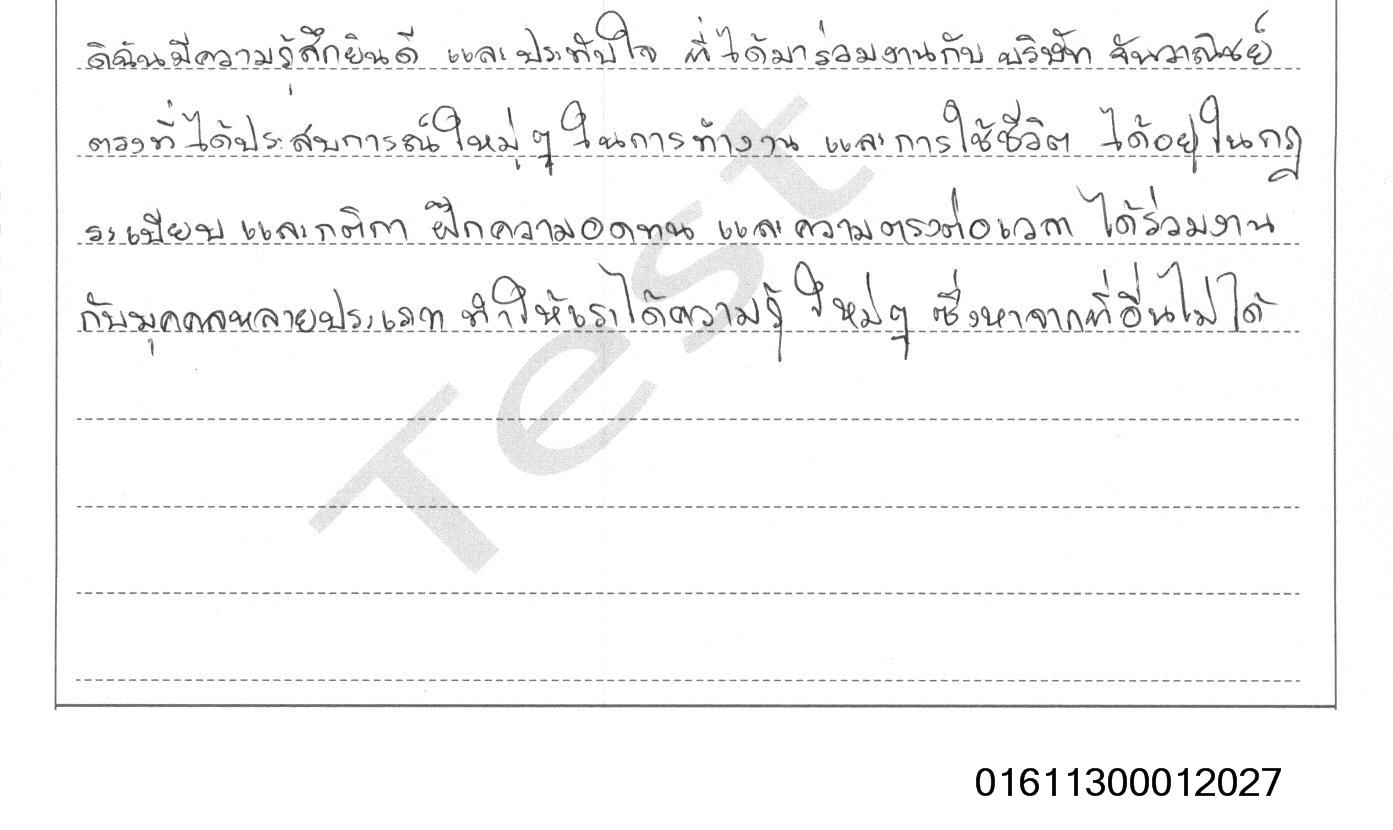 ดิฉันมีความรู้สึกยินดี และประทับใจ ที่ได้มาร่วมงานกับ บริษัท จันวาณิชย์
ตรงที่ได้ประสบการณ์ใหม่ๆ ในการทำงาน และการใช้ชีวิต ได้อยู่ในกฎ
ระเบียบ และกติกา ฝึกความอดทน และความตรงต่อเวลา ได้ร่วมงาน
กับบุคคลหลายประเภท ทำให้เราได้ความรู้ ใหม่ๆ ซึ่งหาจากที่อื่นไม่ได้
Test
01611300012027